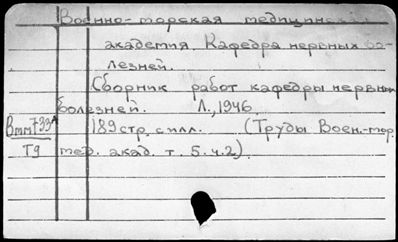 Военно-морская медицинская
академия. Кафедра нервных бо-
лезней.
Сборник работ кафедры нервных
болезней. Л., 1946.
189 стр. с илл. (Труды Воен.-мор.
мед. акад. т. 5. ч. 2).
Т9